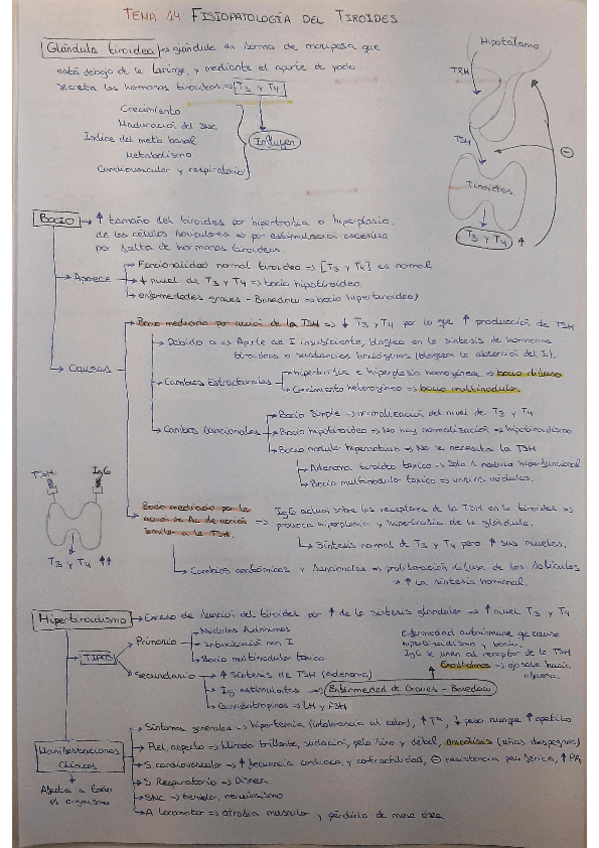 TEMA 14: FISIOPATOLOGÍA DEL TIROIDES
Glándula tiroidea → glándula en forma de mariposa que
está debajo de la laringe, y mediante el aporte de yodo
secreta las hormonas tiroideas → T3 y T4.
Crecimiento
Maduración del SNC
Índice del metb basal
Metabolismo
Cardiovascular y respiratorio
Influyen
Hipotálamo
TRH
TSH
Tiroides
T3 y T4 ↑
Bocio → ↑ tamaño del tiroides por hipertrofia o hiperplasia
de las células foliculares → por estimulación excesiva
por falta de hormonas tiroideas.
Aparece
Funcionalidad normal tiroidea → [T3 y T4] es normal
↓ nivel de T3 y T4 → bocio hipotiroideo
enfermedades graves - Basedow → bocio hipertiroideo)
Causas
Bocio mediado por acción de la TSH → ↓ T3 y T4 por lo que ↑ producción de TSH
Debido a → Aporte de I insuficiente, bloqueo en la síntesis de hormonas
tiroideas o sustancias bociógenas (bloquean la absorción del I).
Cambios Estructurales
hipertrofia e hiperplasia homogénea → bocio difuso
Crecimiento heterogéneo → bocio multinodular
Cambios funcionales
Bocio Simple → normalización del nivel de T3 y T4
Bocio hipotiroideo → No hay normalización → hipotiroidismo
Bocio nodular → No se necesita la TSH
Adenoma tiroideo tóxico → Solo 1 nódulo hiperfuncional
Bocio multinodular tóxico → varios nódulos.
TSH
IgG
T3 y T4 ↑↑
Bocio mediado por la
acción de Ac de acción
similar a la TSH.
IgG actúan sobre los receptores de la TSH en la tiroides →
provoca hiperplasia y hipertrofia de la glándula.
Síntesis normal de T3 y T4 pero ↑ sus niveles.
Cambios anatómicos y funcionales → proliferación difusa de los folículos
→ ↑ la síntesis hormonal.
Hipertiroidismo → Exceso de función del tiroides por ↑ de la síntesis glandular → ↑ nivel T3 y T4
TIPOS
Primario
Nódulos Autónomos
Intoxicación con I
Bocio multinodular tóxico
Secundario
↑ Síntesis de TSH (adenoma)
Ig estimulantes → Enfermedad de Graves - Basedow
Gonadotropinas → LH y FSH
enfermedad autoinmune que causa
hipertiroidismo y bocio.
IgG se unen al receptor de la TSH
Exoftalmos → ojo sale hacia
afuera.
Manifestaciones
Clínicas
Afecta a todo
el organismo
Síntomas generales → hipertermia (intolerancia al calor), ↑ Tª, ↓ peso aunque ↑ apetito
Piel, aspecto → Mirada brillante, sudoración, pelo fino y débil, onicólisis (uñas despegadas)
S. cardiovascular → ↑ frecuencia cardíaca y contractilidad, ⊖ resistencia periférica, ↑ PA
S. Respiratorio → Disnea.
SNC → temblor, nerviosismo
A. locomotor → atrofia muscular y pérdida de masa ósea.